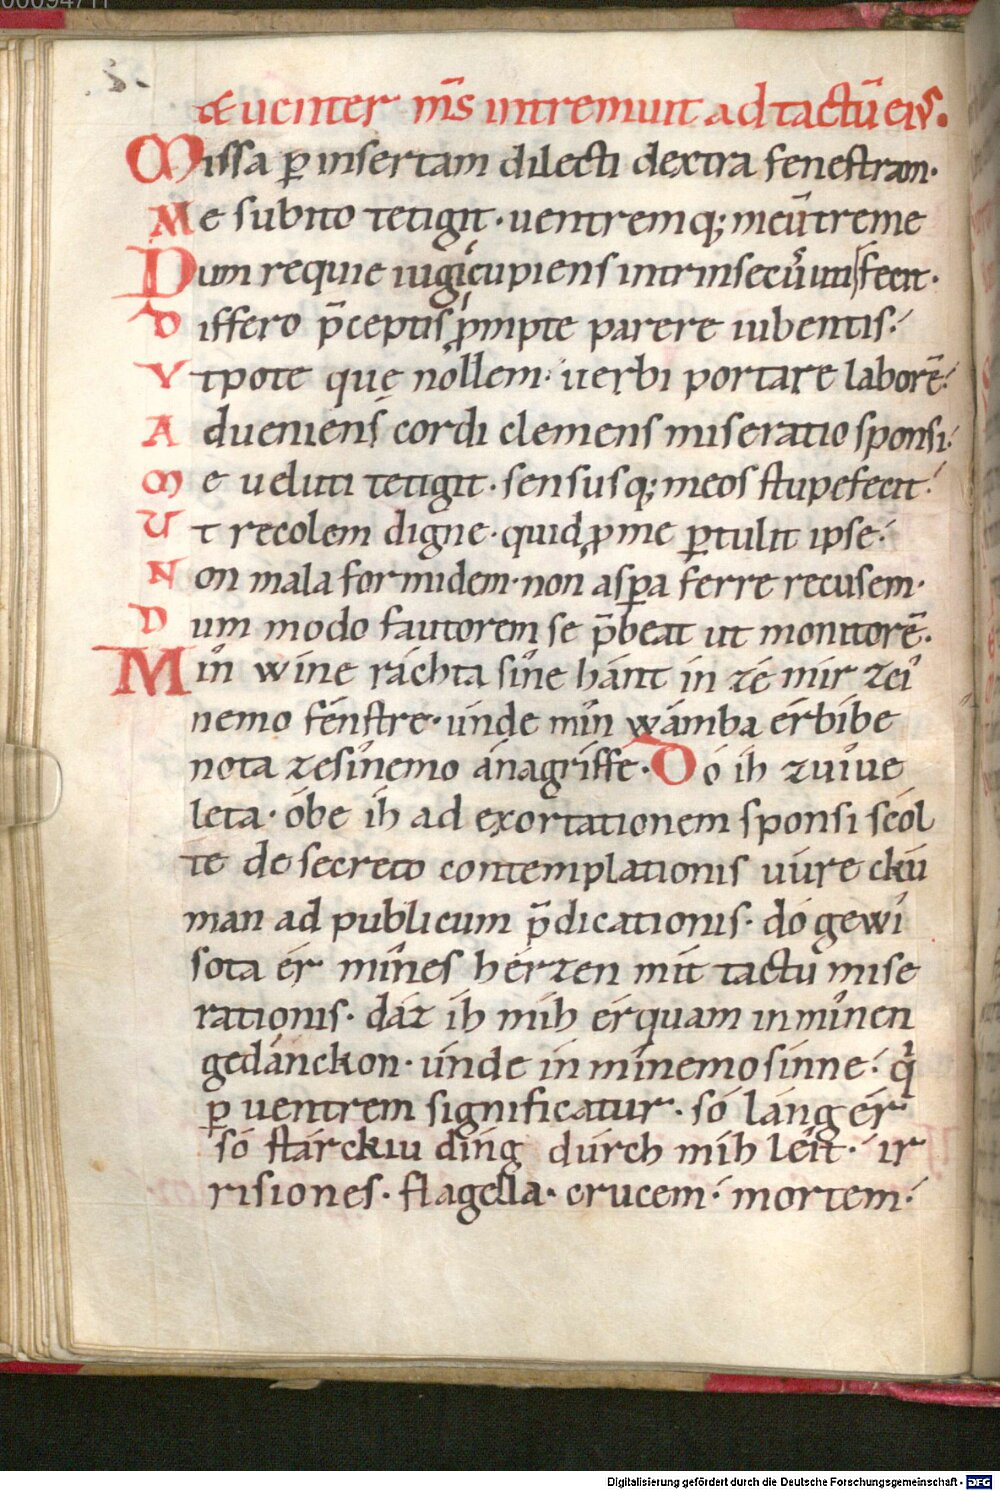 00094711
&uenter m̄s intremuit ad tactū ei᷒.
Missa ꝑ insertam dilecti dextra fenestram·
Me subito tetigit· uentremq; meū treme
Dum requie iugi cupiens intrinsec᷒ uti fecit·
Differo p̄ceptis ꝓmpte parere iubentis·
Vtpote quę nollem· uerbi portare laborē·
Adueniens cordi clemens miseratio sponsi·
Me veluti tetigit· sensusq; meos stupefecit·
Ut recolem digne· quid ꝓ me ꝑtulit ipse·
Non mala formidem· non asꝑa ferre recusem·
Dum modo fautorem se p̄beat ut monitorē·
Mîn wine ráchta sîne hánt in zé mir zeî
nemo fénstre· únde mîn wámba érbibe
nota zesînemo ánagriffe· Dó ih zuîue
leta· óbe ih ad exortationem sponsi scól
te de secreto contemplationis uúre ckú
man ad publicum p̄dicationis· dó gewî
sota ér mînes hérzen mit tactu mise
rationis· dáz ih mih érquam in mînen
gedánckon· únde in mînemo sinne· q̇
ꝑ uentrem significatur· só láng ér
só stárckiu díng dúrch mih léit· ir
risiones· flagella· crucem· mortem·
Digitalisierung gefördert durch die Deutsche Forschungsgemeinschaft - DFG